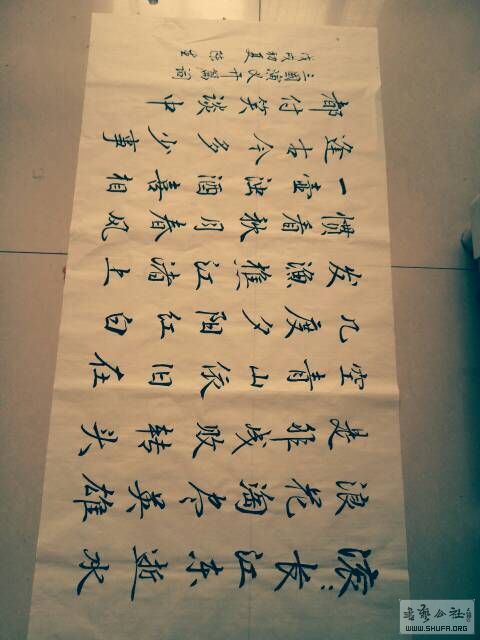 滚〻长江东逝水
浪花淘尽英雄
是非成败转头
空青山依旧在
几度夕阳红白
发渔樵江渚上
惯看秋月春风
一壶浊酒喜相
逢古今多少事
都付笑谈中
三國演义开篇词
戊戌初夏
书艺公社
WWW.SHUFA.ORG